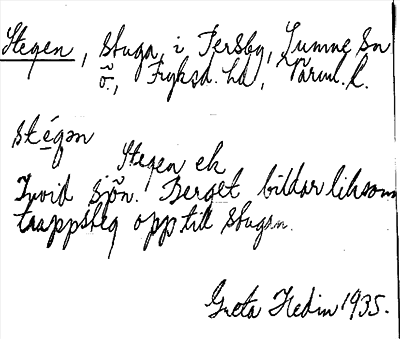 Stegen, stuga, i Persby, Sunne sn
ö., Fryksd. hd, Värml. l.
stégən
Stegen ek
Invid sjön. Berget bildar liksom
trappsteg opp till stugan.
Greta Hedin 1935.